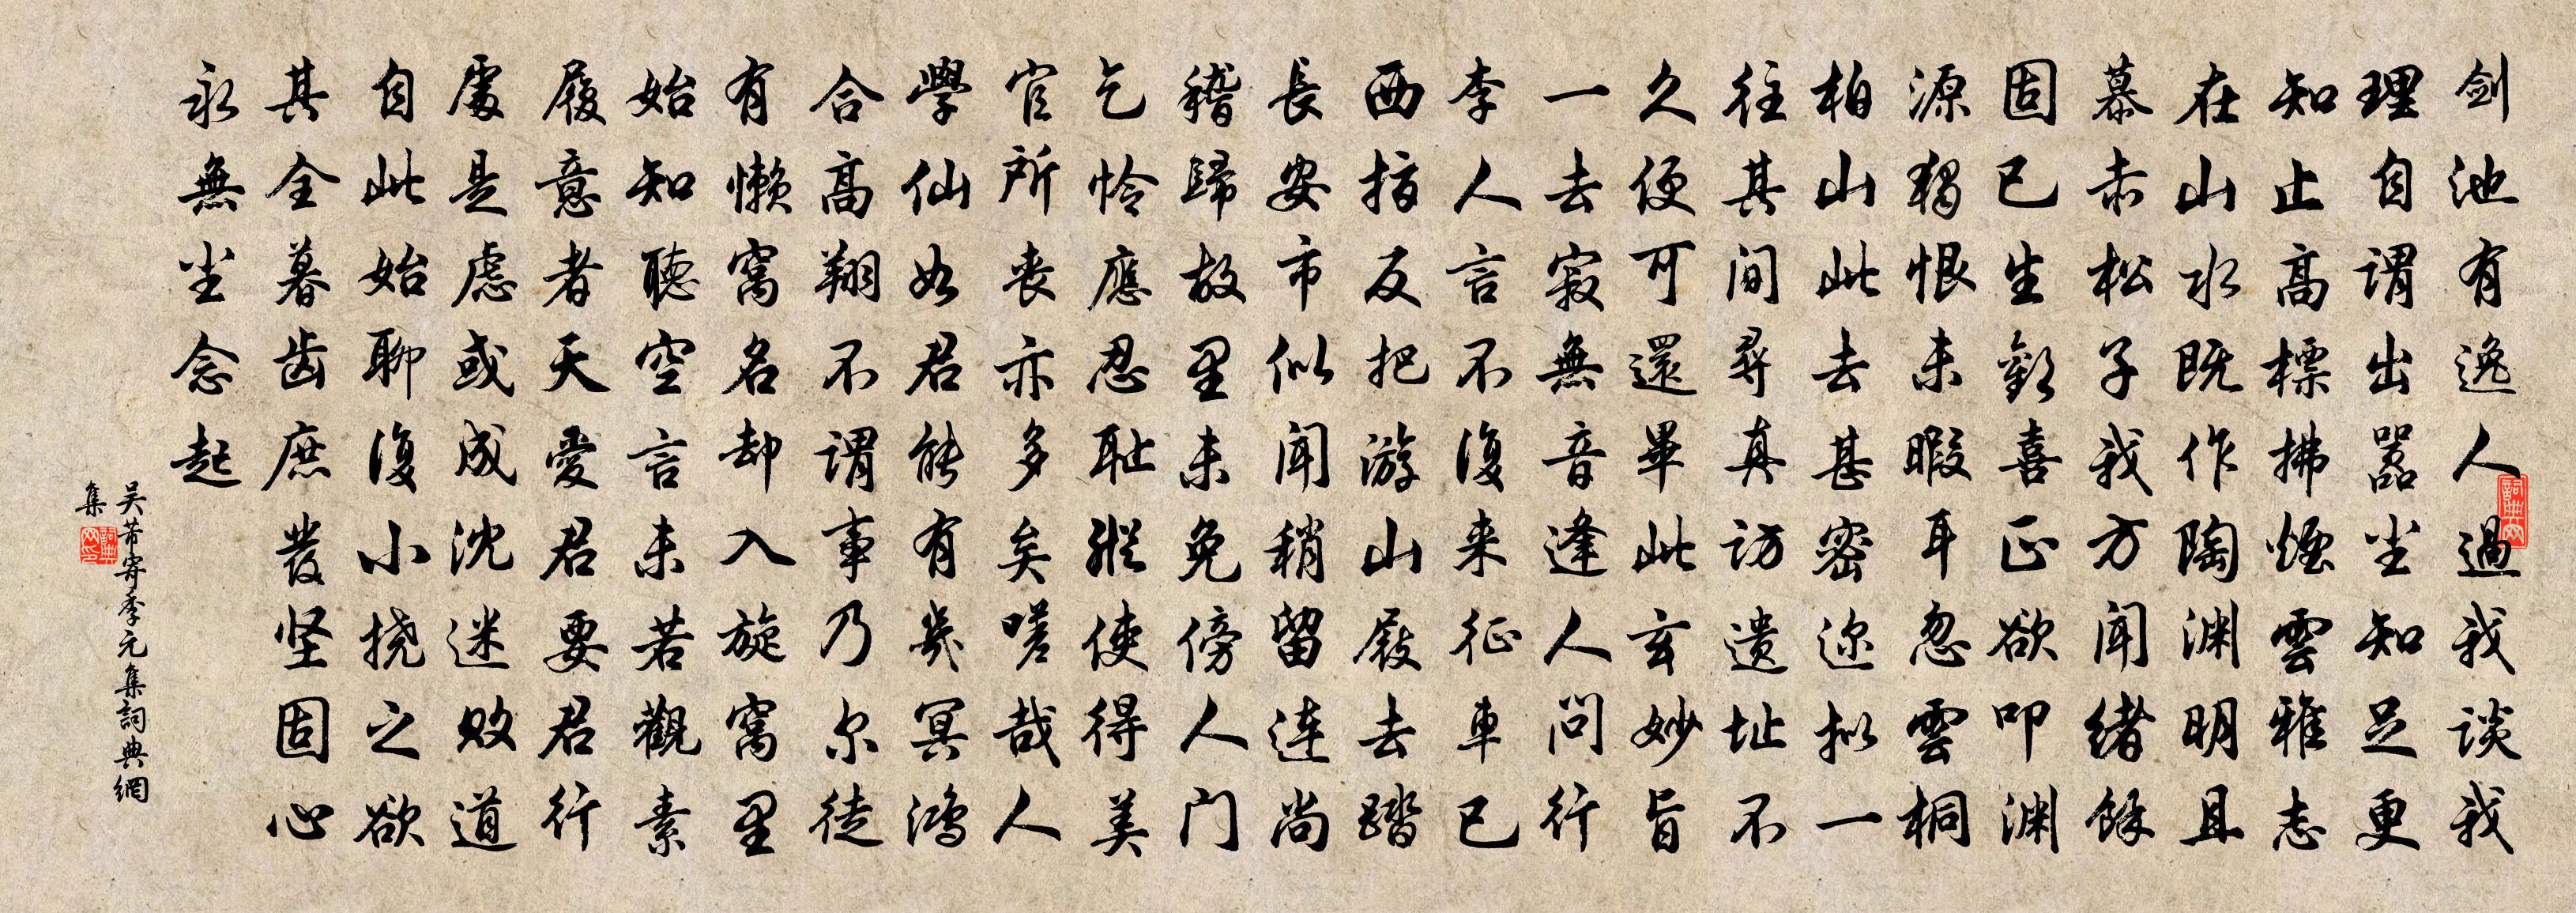 剑池有逸人過我谈我
理自谓出嚣尘知足更
知止高標拂煙雲雅志
在山水既作陶渊明且
慕赤松子我方闻绪餘
固已生歡喜正欲叩渊
源獨恨未暇耳忽雲桐
柏山此去甚密迩拟一
往其间尋真访遗址不
久便可還畢此玄妙旨
一去寂無音逢人问行
李人言不復来征車已
西指反把游山屐去踏
長安市似闻稍留连尚
稽歸故里未免傍人门
乞怜應忍耻縱使得美
官所丧亦多矣嗟哉人
學仙如君能有幾冥鸿
合高翔不谓事乃尔徒
有懒窝名却入旋窝里
始知聽空言未若觀素
履意者天愛君要君行
處是虑或成沈迷败道
自此始聊復小挠之欲
其全暮齿庶發坚固心
永無尘念起
吴芾寄季元集詞典網
集